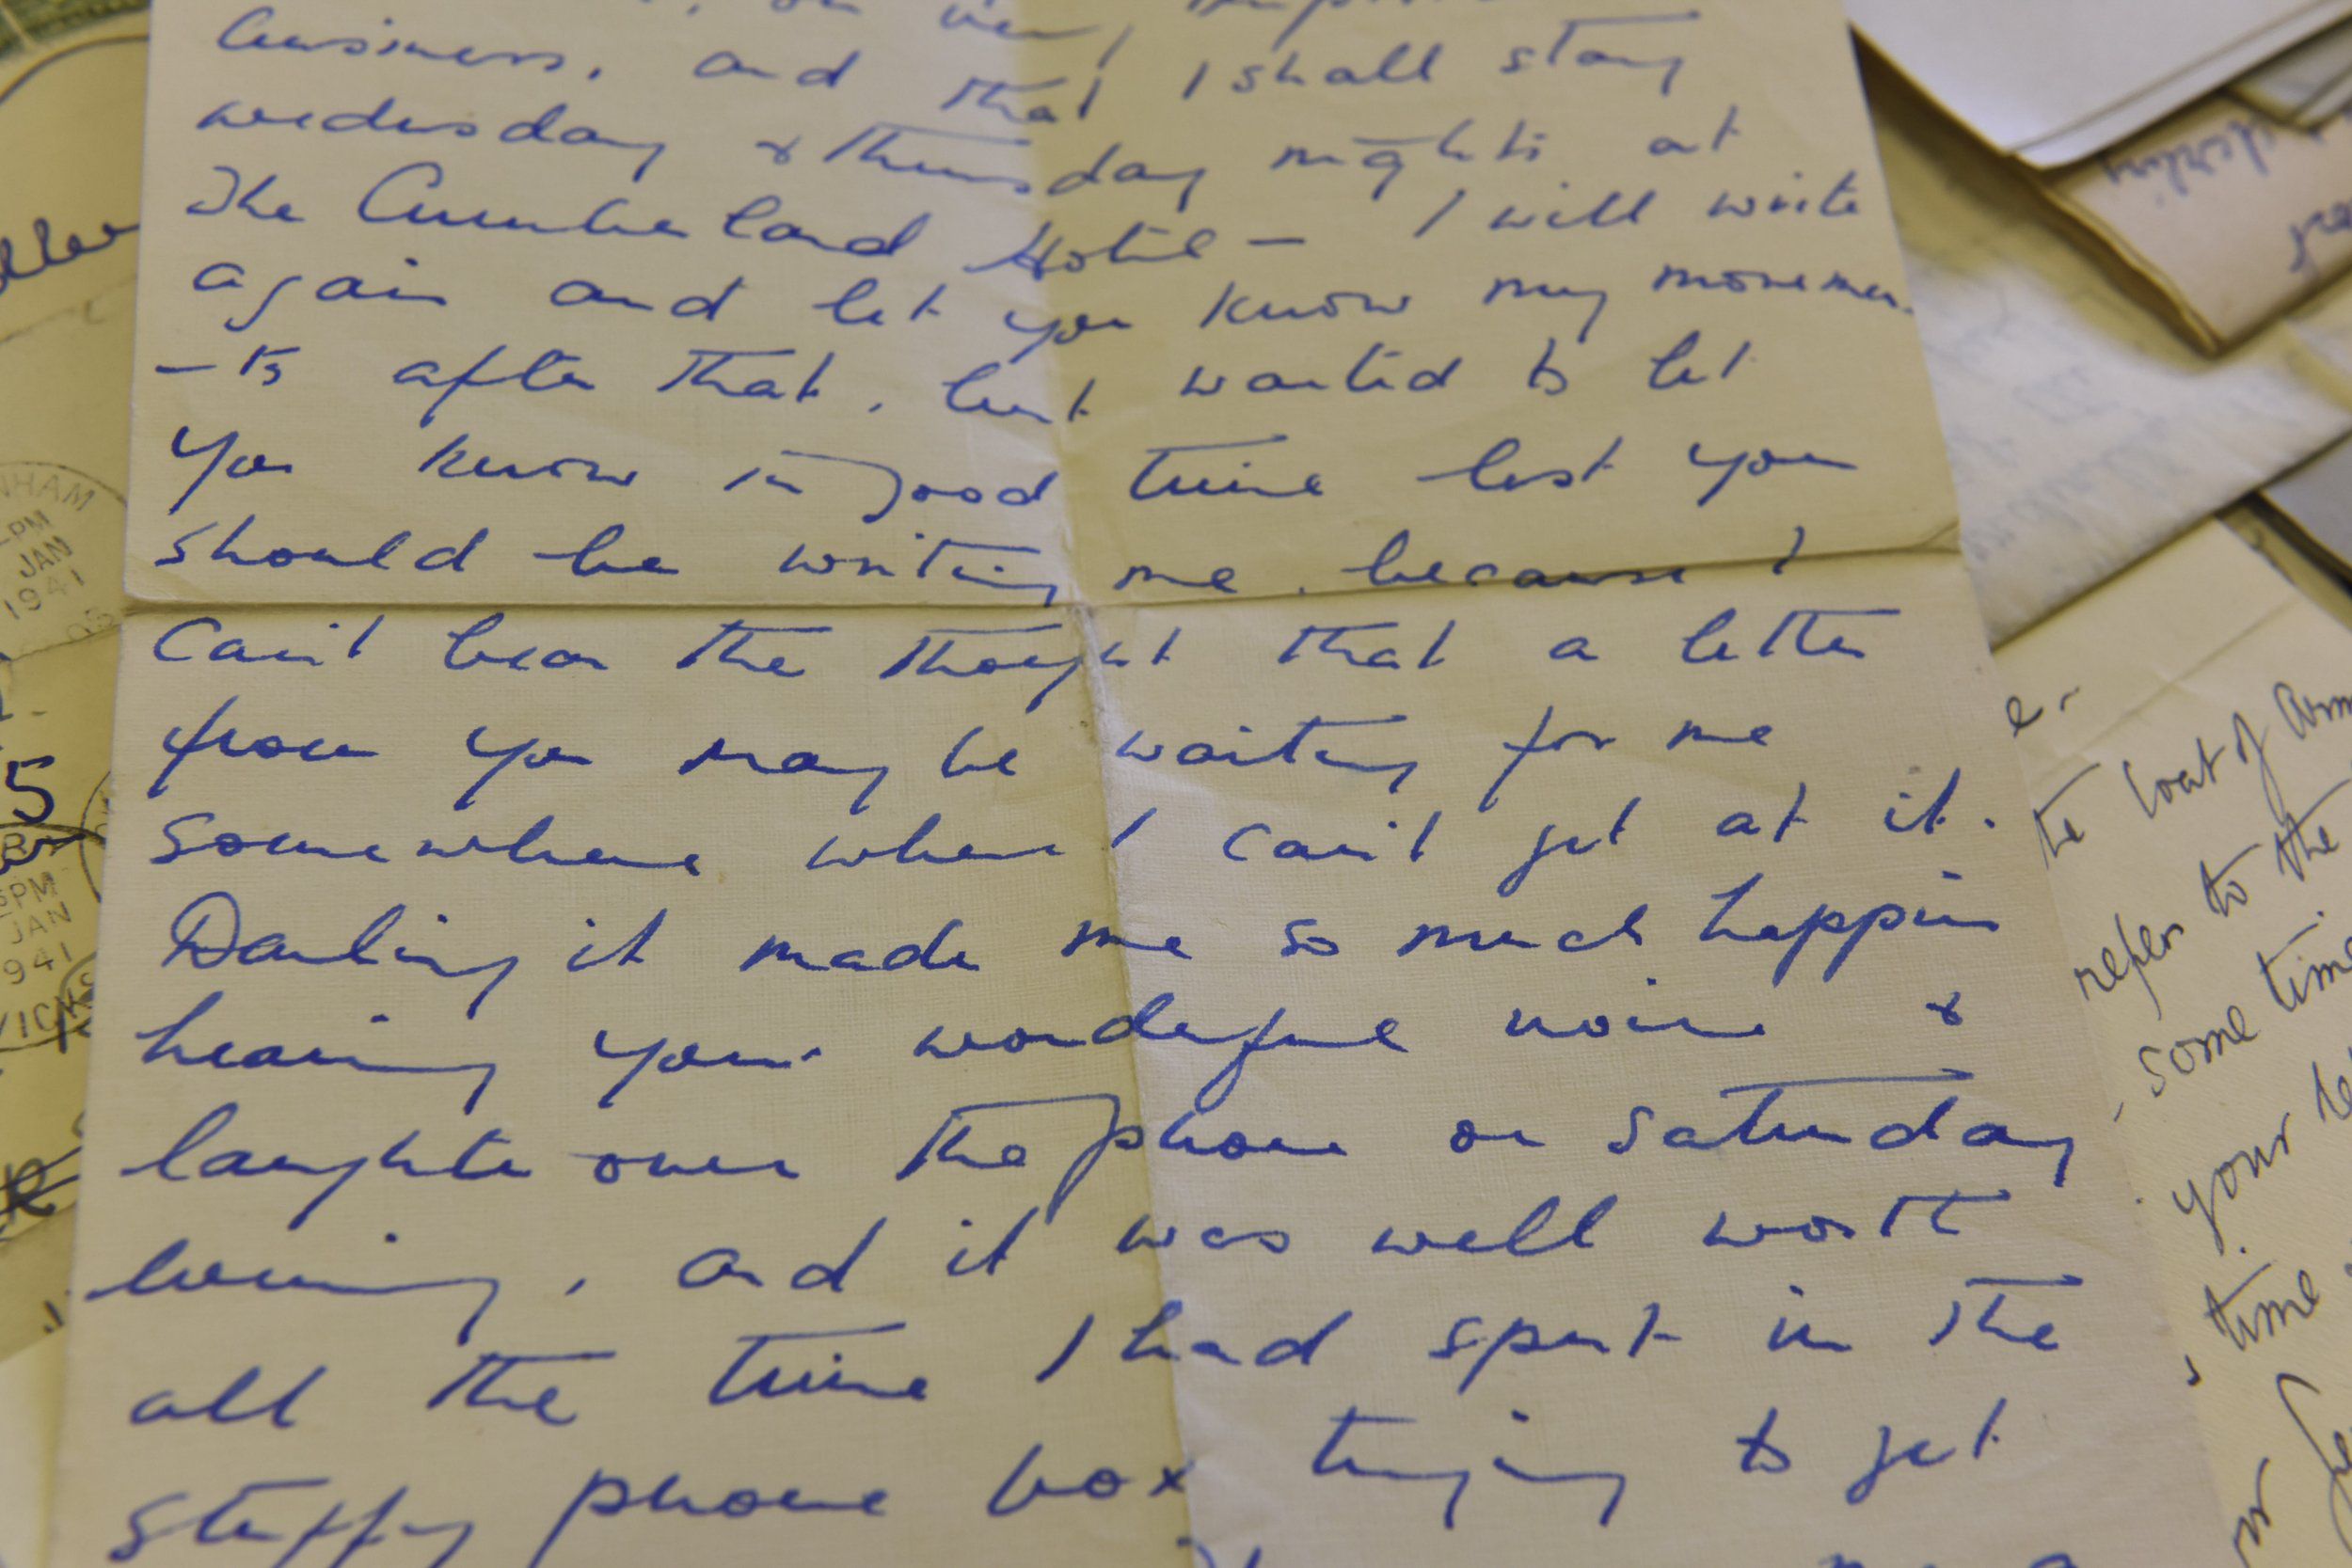 business, and that I shall stay
wednesday & thursday nights at
The Cumberland Hotel — I will write
again and let you know my movemen
-ts after that, but wanted to let
you know in good time lest you
should be writing me, because I
can't bear the thought that a letter
from you may be waiting for me
somewhere where I can't get at it.
Darling it made me so much happier
hearing your wonderful voice &
laughter over the phone on Saturday
evening, and it was well worth
all the time I had spent in the
stuffy phone box trying to get
NHAM
PM
JAN
1941
5
PM
JAN
941
WICK
darling
te Coat of Arm
refer to the
some time
your
time